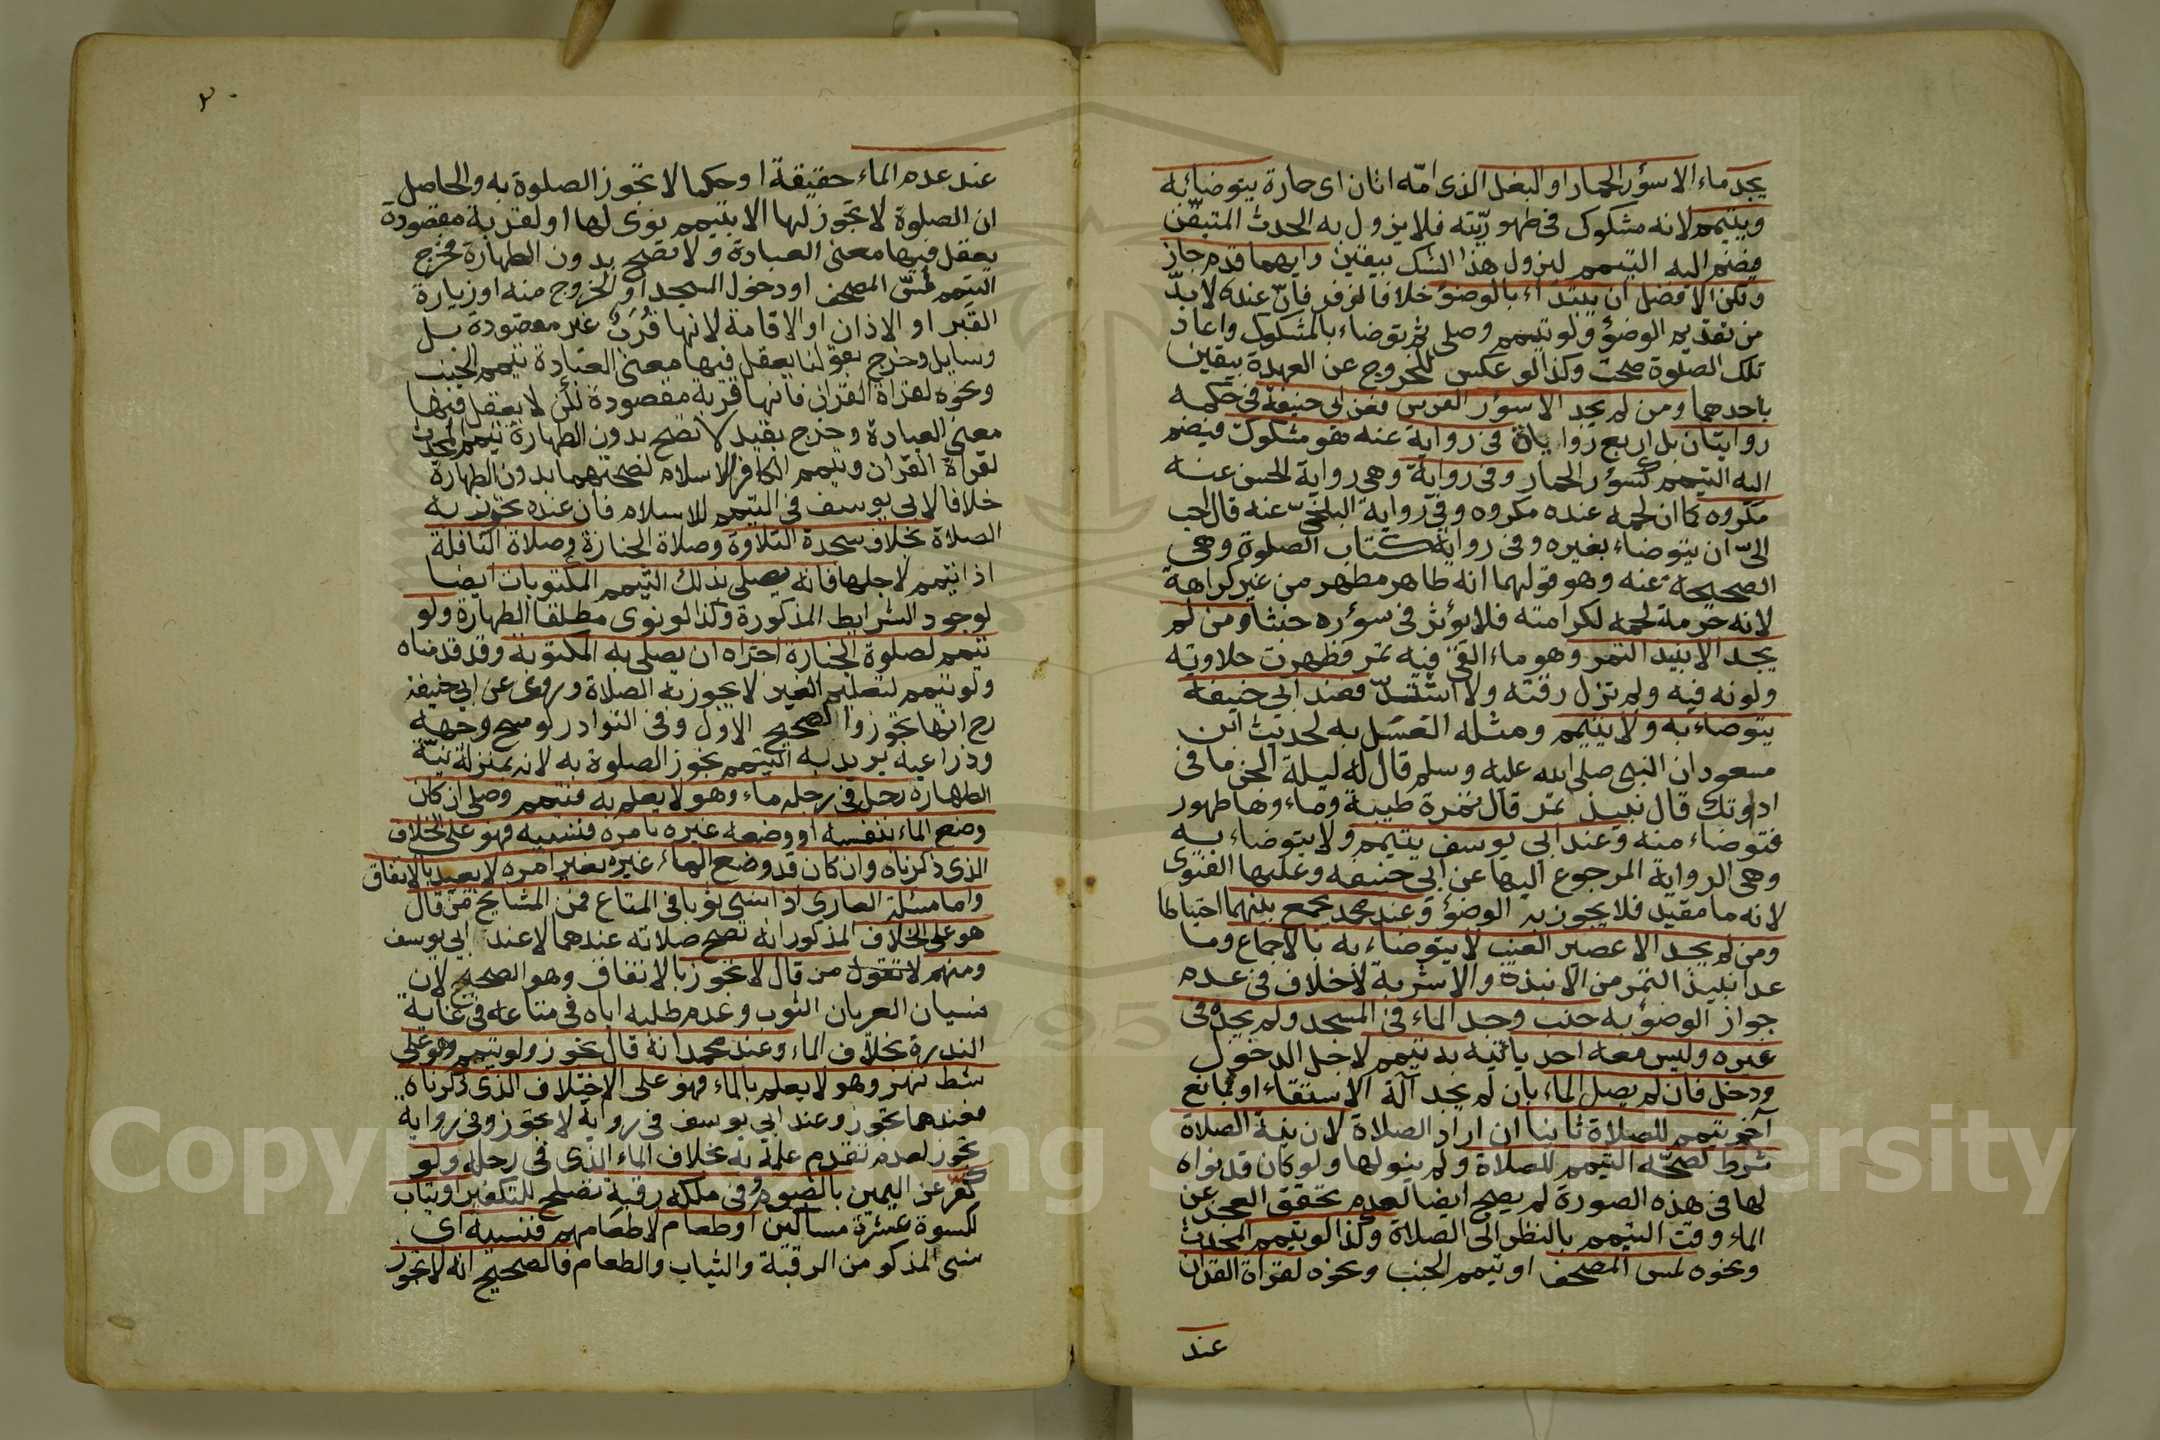 يجد ماء الا سؤر الحمار او البغل الذى امّه اتان اى حمارة يتوضا به
ويتيمم لانه مشكوك فى طهوريّته فلا يزول به الحدث المتيقّن
فيضم اليه التيمم ليزول هذا الشك بيقين وايهما قدم جاز
ولكن الافضل ان يبتداء بالوضؤ خلافا لزفر فانّ عنده لا بدّ
من تقديم الوضؤ ولو تيمم وصلى ثم توضاء بالمشكوك واعاد
تلك الصلوة صحت وكذا لو عكس للخروج عن العهدة بيقين
باحدهما ومن لم يجد الا سؤر الفرس فعن ابى حنيفة فى حكمه
روايتان بل اربع روايات فى رواية عنه هو مشكوك فيضم
اليه التيمم كسؤر الحمار وفى رواية وهى رواية الحسن عنه
مكروه كما ان لحمه عنده مكروه وفى رواية البلخىّ عنه قال احب
الىّ ان يتوضاء بغيره وفى رواية كتاب الصلوة وهى
الصحيحة عنه وهو قولهما انه طاهر مطهر من غير كراهة
لانه حرمة لحمه لكرامته فلا يؤثر فى سؤره خبثا ومن لم
يجد الا نبيذ التمر وهو ماء القى فيه تمر فظهرت حلاوته
ولونه فيه ولم تزل رقته ولا اشتدّ فعند ابي حنيفة
يتوضاء به ولا يتيمم ومثله الغسل به لحديث ابن
مسعود ان النبى صلى الله عليه وسلم قال له ليلة الجن ما فى
اداوتك قال نبيذ تمر قال تمرة طيبة وماء وها طهور
فتوضاء منه وعند ابى يوسف يتيمم ولا يتوضاء به
وهى الرواية المرجوع اليها عن ابى حنيفه وعليها الفتوى
لانه ما مقيد فلا يجوز به الوضؤ وعند محمد يجمع بينهما احتياطا
ومن لم يجد الا عصير العنب لا يتوضاء به بالاجماع وما
عدا نبيذ التمر من الانبذة والاشربة لا خلاف فى عدم
جواز الوضؤ به جنب وجد الماء فى المسجد ولم يجده فى
غيره وليس معه احد ياتيه به تيمم لاجل الدخول
ودخل فان لم يصل الماء بان لم يجد آلة الاستقاء او لمانع
آخر تيمم للصلاة ثانيا ان اراد الصلاة لان نية الصلاة
شرط لصحّة التيمم للصلاة ولم ينو لها ولو كان قد نواه
لها فى هذه الصورة لم يصح ايضا لعدم تحقق العجز عن
الماء وقت التيمم بالنظر الى الصلاة وكذا لو تيمم المحدث
ونحوه لمس المصحف او تيمم الجنب ونحوه لقراة القران
عند
٣٠
عند عدم الماء حقيقة او حكما لا تجوز الصلوة به والحاصل
ان الصلوة لا تجوز لها الا بتيمم نوى لها او لقربة مقصودة
يعقل فيها معنى العبادة ولا تصح بدون الطهارة فخرج
التيمم لمسّ المصحف او دخول المسجد او الخروج منه او زيارة
القبر او الاذان او الاقامة لانها قُرَبٌ غير مقصودة بل
وسايل وخرج بقولنا يعقل فيها معنى العبادة تيمم الجنب
ونحوه لقراة القران فانها قربة مقصودة لكن لا يعقل فيها
معنى العبادة وخرج بقيد لا تصح بدون الطهارة تيمم المحدث
لقراة القران وتيمم الكافر للاسلام لصحتهما بدون الطهارة
خلافا لابى يوسف فى التيمم للاسلام فان عنده تجوز به
الصلاة بخلاف سجدة التلاوة وصلاة الجنازة وصلاة النافلة
اذا تيمم لاجلها فانه يصلى بذلك التيمم المكتوبات ايضا
لوجود الشرايط المذكورة وكذا لو نوى مطلقا الطهارة ولو
تيمم لصلوة الجنازة اجزاه ان يصلى به المكتوبة وقد قدمناه
ولو تيمم لتعليم الغير لا يجوز به الصلاة وروى عن ابي حنيفة
رح انها تجوز والصحيح الاول وفى النوادر لو مسح وجهه
وذراعيه يريد به التيمم تجوز الصلوة به لانه بمنزلة نيّة
الطهارة رجل فى رحله ماء وهو لا يعلم به فتيمم وصلى ان كان
وضع الماء بنفسه او وضعه غيره بامره فنسيه فهو على الخلاف
الذى ذكرناه وان كان قد وضع الماء غيره بغير امره لا يعيد بالاتفاق
واما مسئلة العارى اذا نسى ثوبا فى المتاع فمن المشايخ من قال
هو على الخلاف المذكور انه تصح صلاته عندهما لا عند ابى يوسف
ومنهم لا تقول من قال لا تجوز بالاتفاق وهو الصحيح لان
نسيان العريان الثوب وعدم طلبه اياه فى متاعه فى غاية
الندرة بخلاف الماء وعند محمد انه قال يجوز ولو تيمم وهو على
شط نهر وهو لا يعلم بالماء فهو على الاختلاف الذى ذكرناه
فعندهما تجوز وعند ابى يوسف فى رواية لا تجوز وفى رواية
تجوز لعدم تقدم علمه به بخلاف الماء الذى فى رحله ولو
كفّر عن اليمين بالصوم وفى ملكه رقبة تصلح للتكفير او ثياب
لكسوة عشرة مساكين او طعام لاطعامهم فنسيه اى
نسى المذكور من الرقبة والثياب والطعام فالصحيح انه لا تجوز
Copyright © King Saud University
195